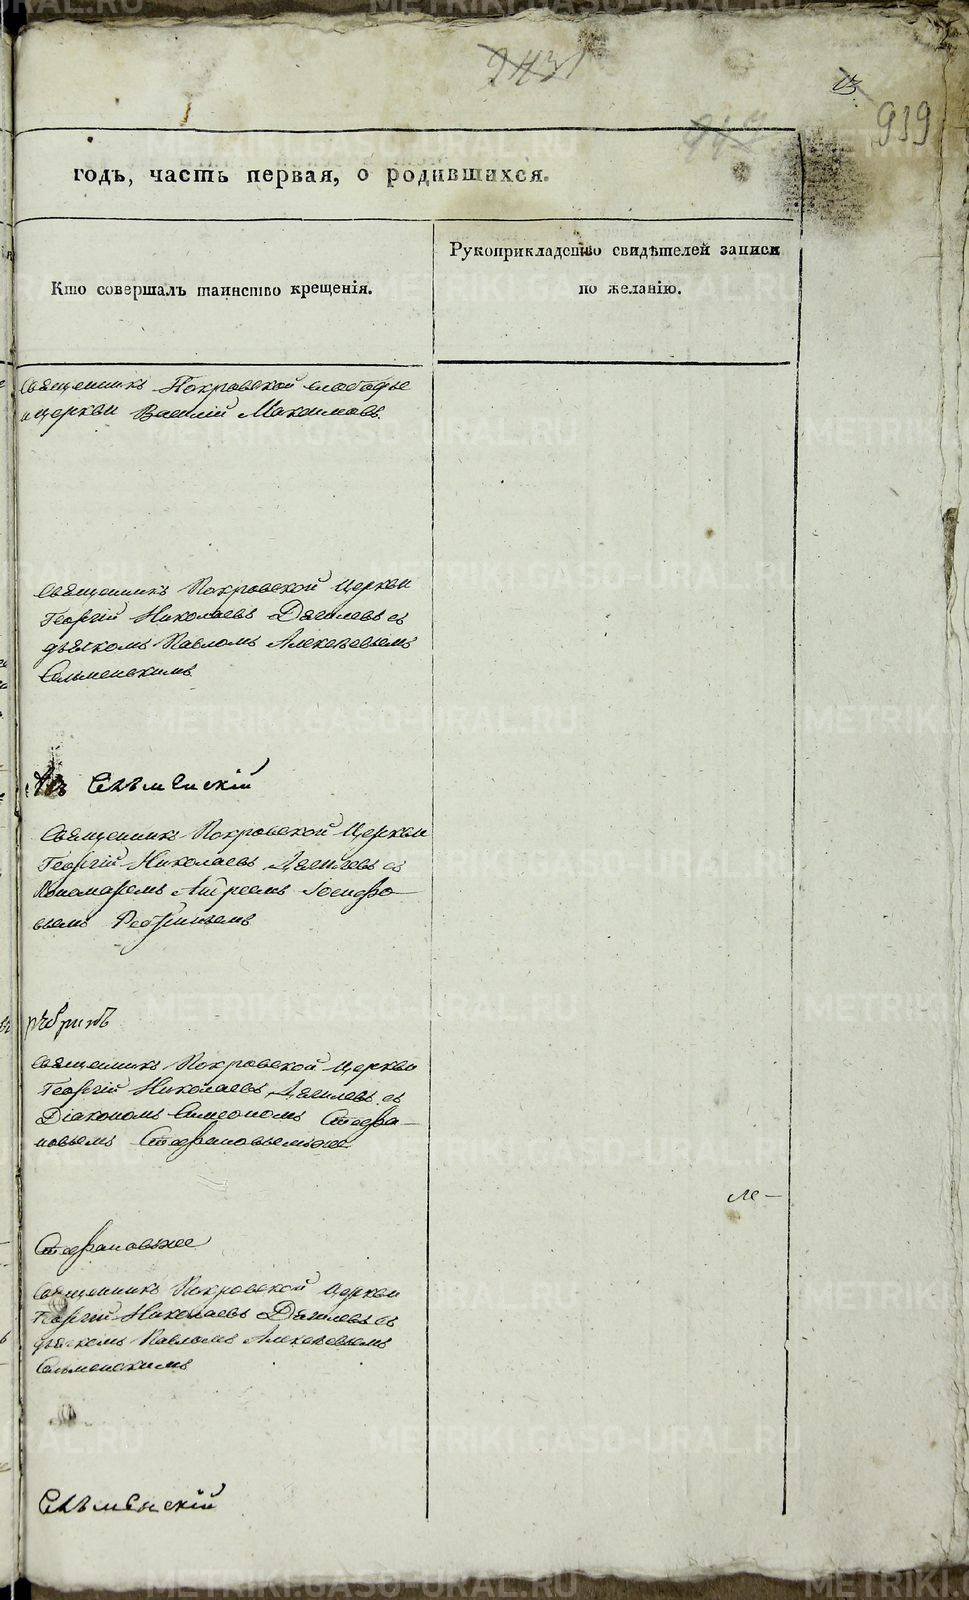 943
13
939
годъ, часть первая, о родившихся.
Кто совершалъ таинство крещенія.
Рукоприкладство свидѣтелей записи
по желанію.
Священникъ Покровской слободы
церкви Василій Максимовъ
Священникъ Покровской Церкви
Георгій Николаевъ Дягилевъ съ
дьячкомъ Павломъ Алексѣевымъ
Сельменскимъ
Сельменскій
Священникъ Покровской Церкви
Георгій Николаевъ Дягилевъ съ
Пономаремъ Андреемъ Іосифо-
вымъ
Священникъ Покровской Церкви
Георгій Николаевъ Дягилевъ съ
Діакономъ Симеономъ Стефа-
новымъ
ле-
Священникъ Покровской Церкви
Георгій Николаевъ Дягилевъ съ
дьячкомъ Павломъ Алексѣевымъ
Сельменскимъ
Сельменскій
METRIKI.GASO-URAL.RU